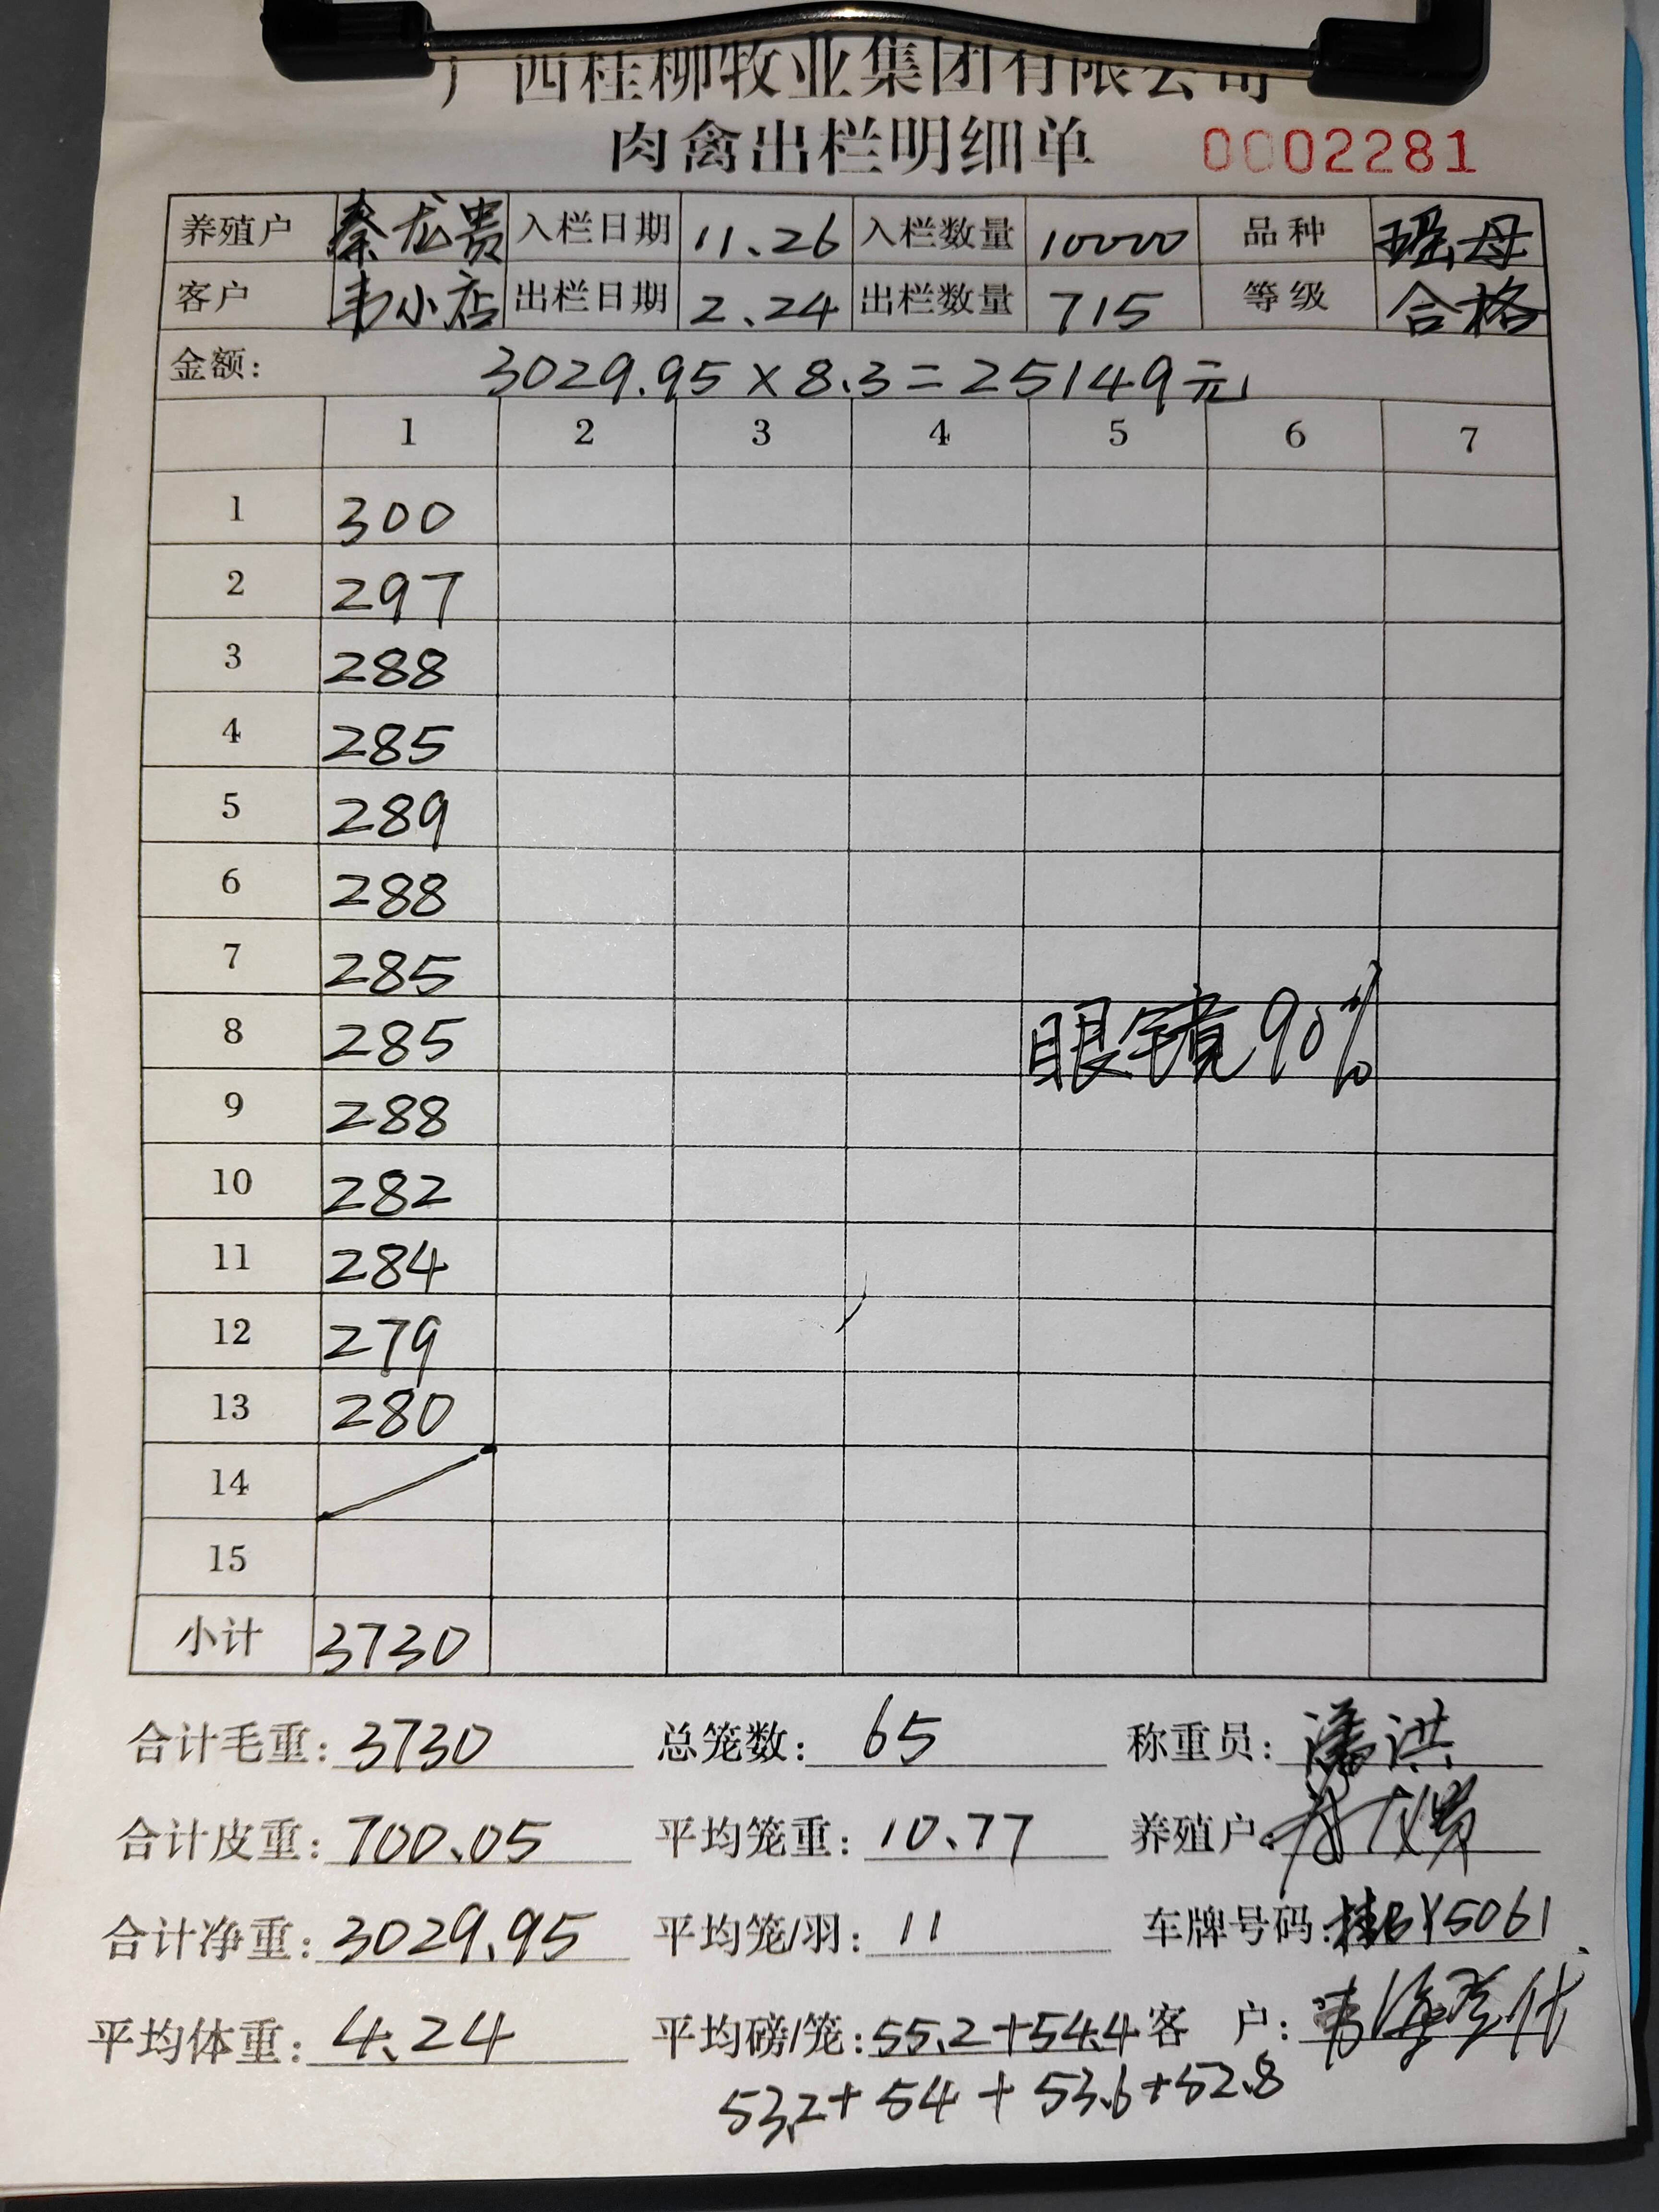 广西桂柳牧业集团有限公司
肉禽出栏明细单 0002281
养殖户 秦龙贵 入栏日期 11.26 入栏数量 10000 品种 瑶母
客户 韦小店 出栏日期 2.24 出栏数量 715 等级 合格
金额: 3029.95×8.3=25149元
1 2 3 4 5 6 7
1 300
2 297
3 288
4 285
5 289
6 288
7 285
8 285
眼镜90%
9 288
10 282
11 284
12 279
13 280
14
15
小计 3730
合计毛重: 3730 总笼数: 65 称重员: 潘洪
合计皮重: 700.05 平均笼重: 10.77 养殖户:
合计净重: 3029.95 平均笼/羽: 11 车牌号码: 桂BY5061
平均体重: 4.24 平均磅/笼: 55.2+54.4 客户:
53.2+54+53.6+52.8